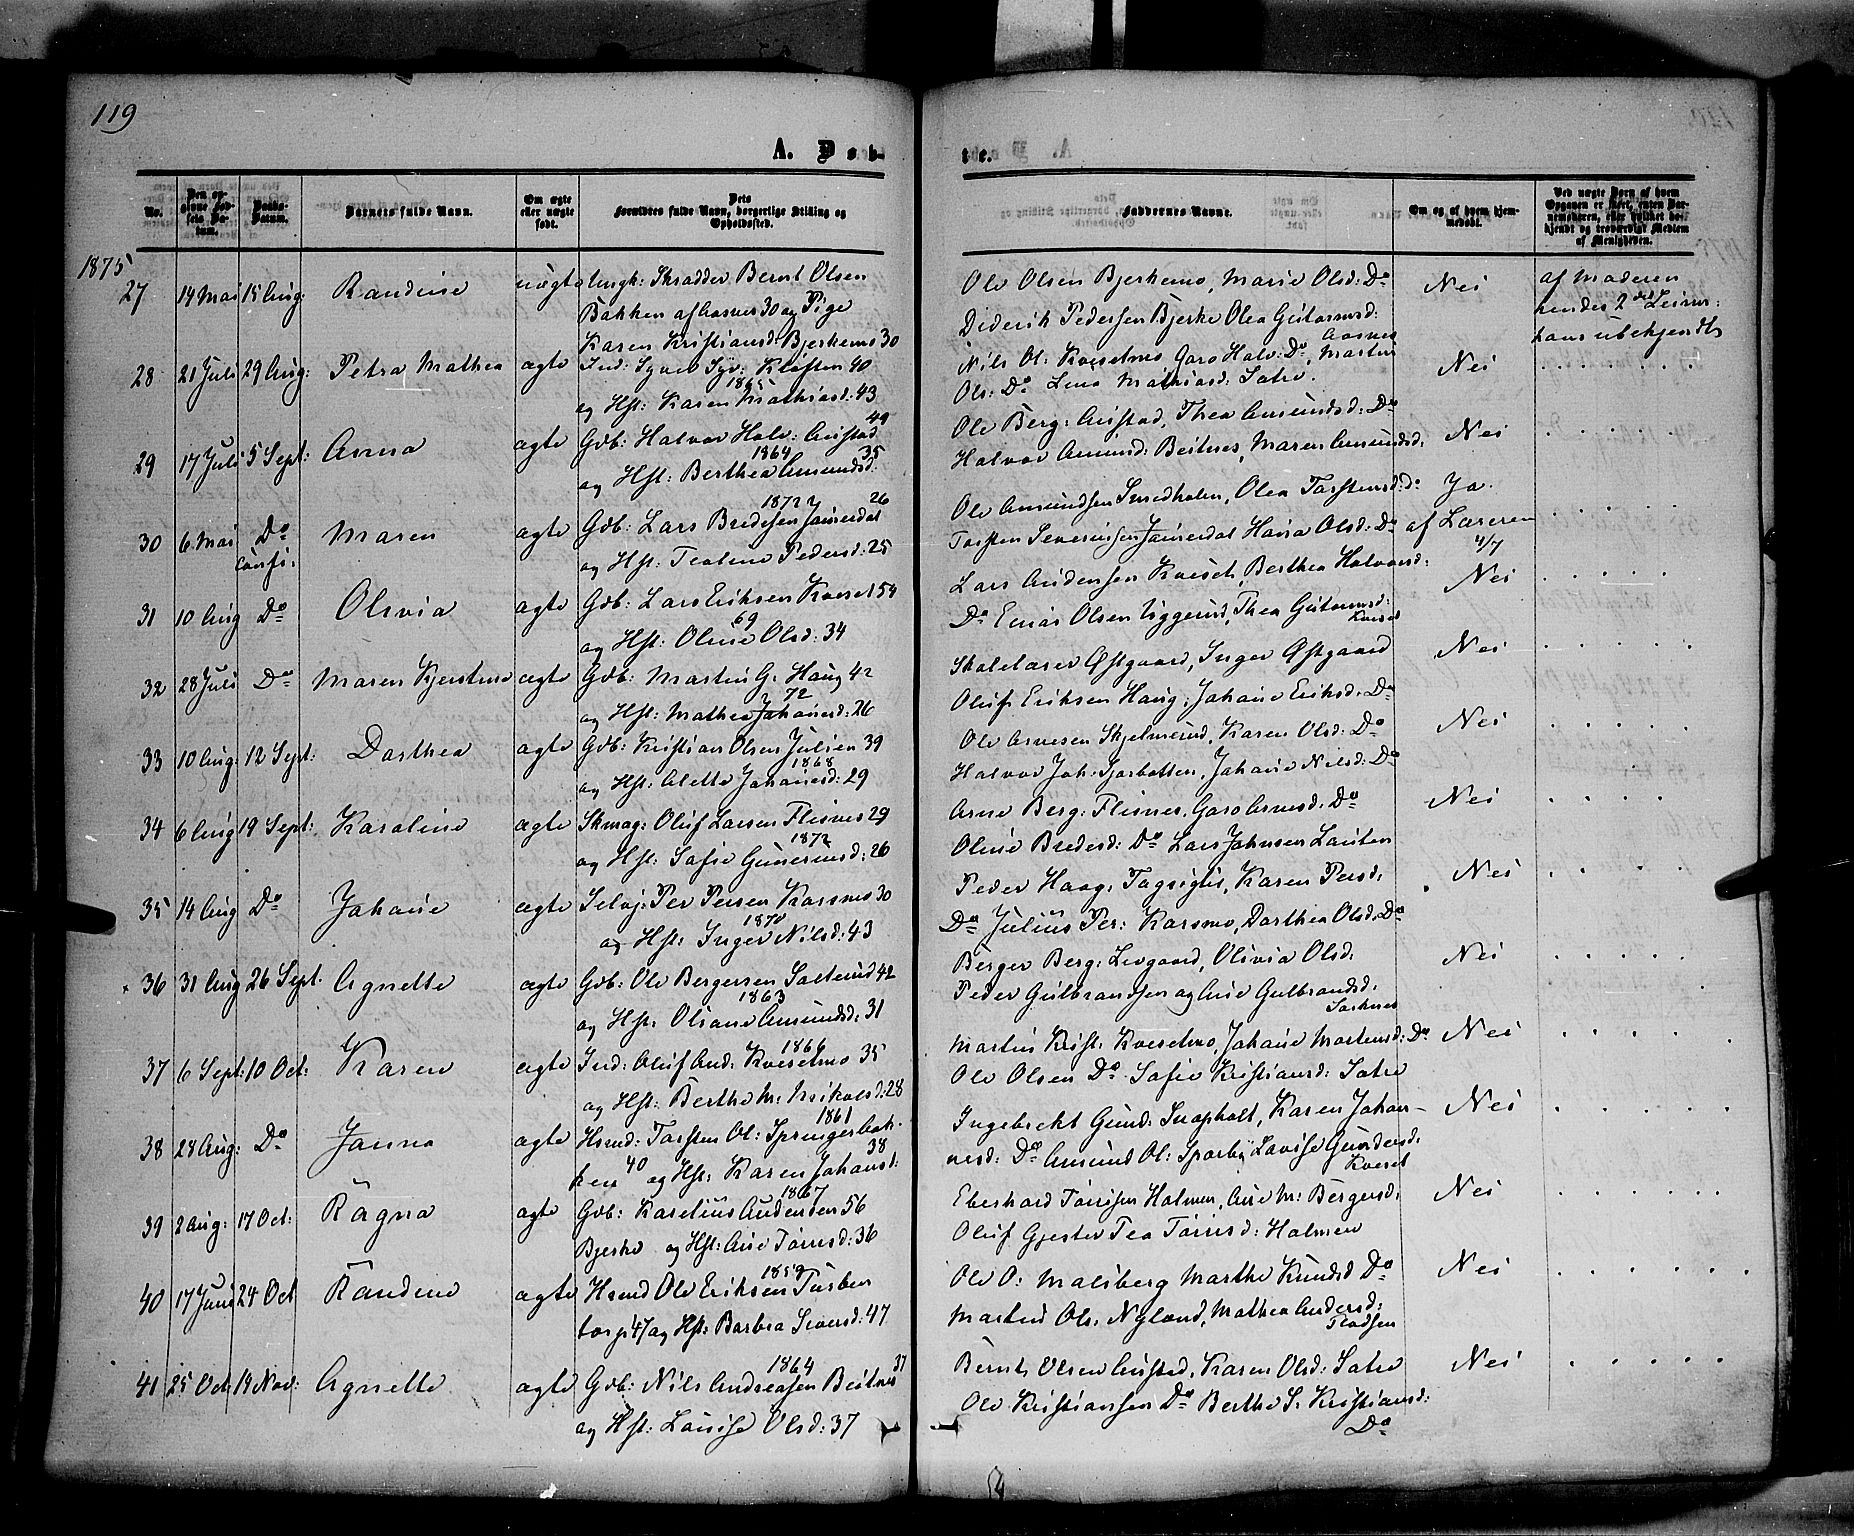 119
A. Døb-
te.
No.
Den opgivne Fødsels Datum.
Daabs-Datum.
Barnets fulde Navn.
Om ægte eller uægte født.
Dets Forældres fulde Navn, borgerlige Stilling og Opholdssted.
Faddernes Navne.
Om og af hvem hjemmedøbt.
Ved uægte Børn af hvem Opgaven er skeet, enten Barnemoderen, eller hvilket bekjendt og troværdigt Medlem af Menigheden.
1875
27 14 Mai 15 Aug: Randine uægte Ungk: Skrædder Bernt Olsen
Bakken af Aasnes 30 og Pige
Karen Kristiansd: Bjerkemo 30
Ole Olsen Bjerkemo, Marie Olsd: Do
Diderik Pedersen Bjerke Olea Gutormsd:
Aasnes
Nei
af Moderen
hendes 2det Leierm:
hans ubekjendt
28 21 Juli 29 Aug: Petra Mathea ægte Ind: Syver Syv: Kløften 40
1865
og Hst: Karen Mathiasd: 43
Nils Ol: Kveselmo, Goro Halv: Do, Martin
Ols: Do Lena Mathiasd: Sætre.
Nei
29 17 Juli 5 Sept: Anna ægte Gdb: Halvor Halv: Austad 49
1864
og Hst: Berthea Amundsd: 35
Ole Berg: Austad, Thea Amundsd: Do
Halvor Amund: Beitnes, Maren Amundsd:
Nei
30 6 Mai Do Maren ægte Gdb: Lars Bredesen Jamerdal 26
1872
Confi:
og Hst: Teoline Pedersd: 25
Ole Amundsen Smedholen, Olea Torstensd: do
Torsten Severinsen Jamerdal Hana Olsd: Do
Ja.
af Læreren
4/7
31 10 Aug Do Olivia ægte Gdb: Lars Eriksen Kveset 54
69
og Hst: Oline Olsd: 34
Lars Audensen Kveset, Berthea Halvorsd:
Do Einar Olsen Uggerud, Thea Gutormsd:
Kveset
Nei
32 28 Juli Do Maren Kjerstine ægte Gdb: Martin G. Haug 42
72
og Hst: Mathea Johanesd: 26
Skolelærer Østgaard, Inger Østgaard
Oluf Eriksen Haug, Johane Eriksd: Do
Nei
33 10 Aug: 12 Sept: Dorthea ægte Gdb: Kristian Olsen Julien 39
1868
og Hst: Alette Johanesd: 29
Ole Arnesen Skjelmerud, Karen Olsd: Do
Halvor Joh: Tjørbotten, Johane Nilsd: Do
Nei
34 6 Aug 19 Sept: Karoline ægte Skmag: Oluf Larsen Flisnes 29
1872
og Hst: Sofie Gunerusd: 26
Arne Berg: Flisnes, Goro Arnesd: Do
Oline Bredesd: Do Lars Johnsen Lauten
Nei
35 14 Aug Do Johane ægte Selvj: Per Persen Korsmo 30
1870
og Hst: Inger Nilsd: 43
Peder Haag: Tagrigtis, Karen Persd:
Do Julius Per: Korsmo, Dorthea Olsd: Do
Nei
36 31 Aug 26 Sept. Agnette ægte Gdb: Ole Bergersen Sæterud 42
1863
og Hst: Oliane Amundsd: 31
Berger Berg: Lovgaard, Olivia Olsd:
Peder Gulbrandsen og Ane Gulbrandsd:
Sorknes
Nei
37 6 Sept: 10 Oct: Karen ægte Ind: Oluf And: Kveselmo 35
1866
og Hst: Berthe M: Mikalsd: 28
Martin Krist: Kveselmo, Johane Mortensd: Do
Ole Olsen Do Sofie Kristiansd: Sætre
Nei
38 28 Aug: Do Janna ægte Hsmd: Torsten Ol: Springerbak-
1861
ken 40 og Hst: Karen Johansd: 38
Ingebrekt Gund: Snapholt, Karen Johan-
nesd: Do Amund Ol: Sparby Lovise Gundersd:
Kveset
Nei
39 2 Aug: 17 Oct: Ragna ægte Gdb: Karelius Audensen 56
1867
Bjerke og Hst: Ane Torersd: 36
Eberhard Torersen Holmen, Ane M: Bergersd:
Oluf Gjester Tea Torersd: Holmen
Nei
40 17 Juni 24 Oct Randine ægte Hsmd Ole Eriksen Torben
1859
torp 47 og Hst: Barbra Seversd: 47
Ole O: Malsberg Marthe Knudsd Do
Martin Ols: Nyland, Mathea Andersd:
Flodsen
Nei
41 25 Oct 14 Nov: Agnette ægte Gdb: Nils Andreasen Beitnes 37
1864
og Hst: Lovisse Olsd: 37
Bernt Olsen Austad, Karen Olsd: Sætre
Ole Kristiansen Do Berthe S. Kristiansd:
Do
Nei